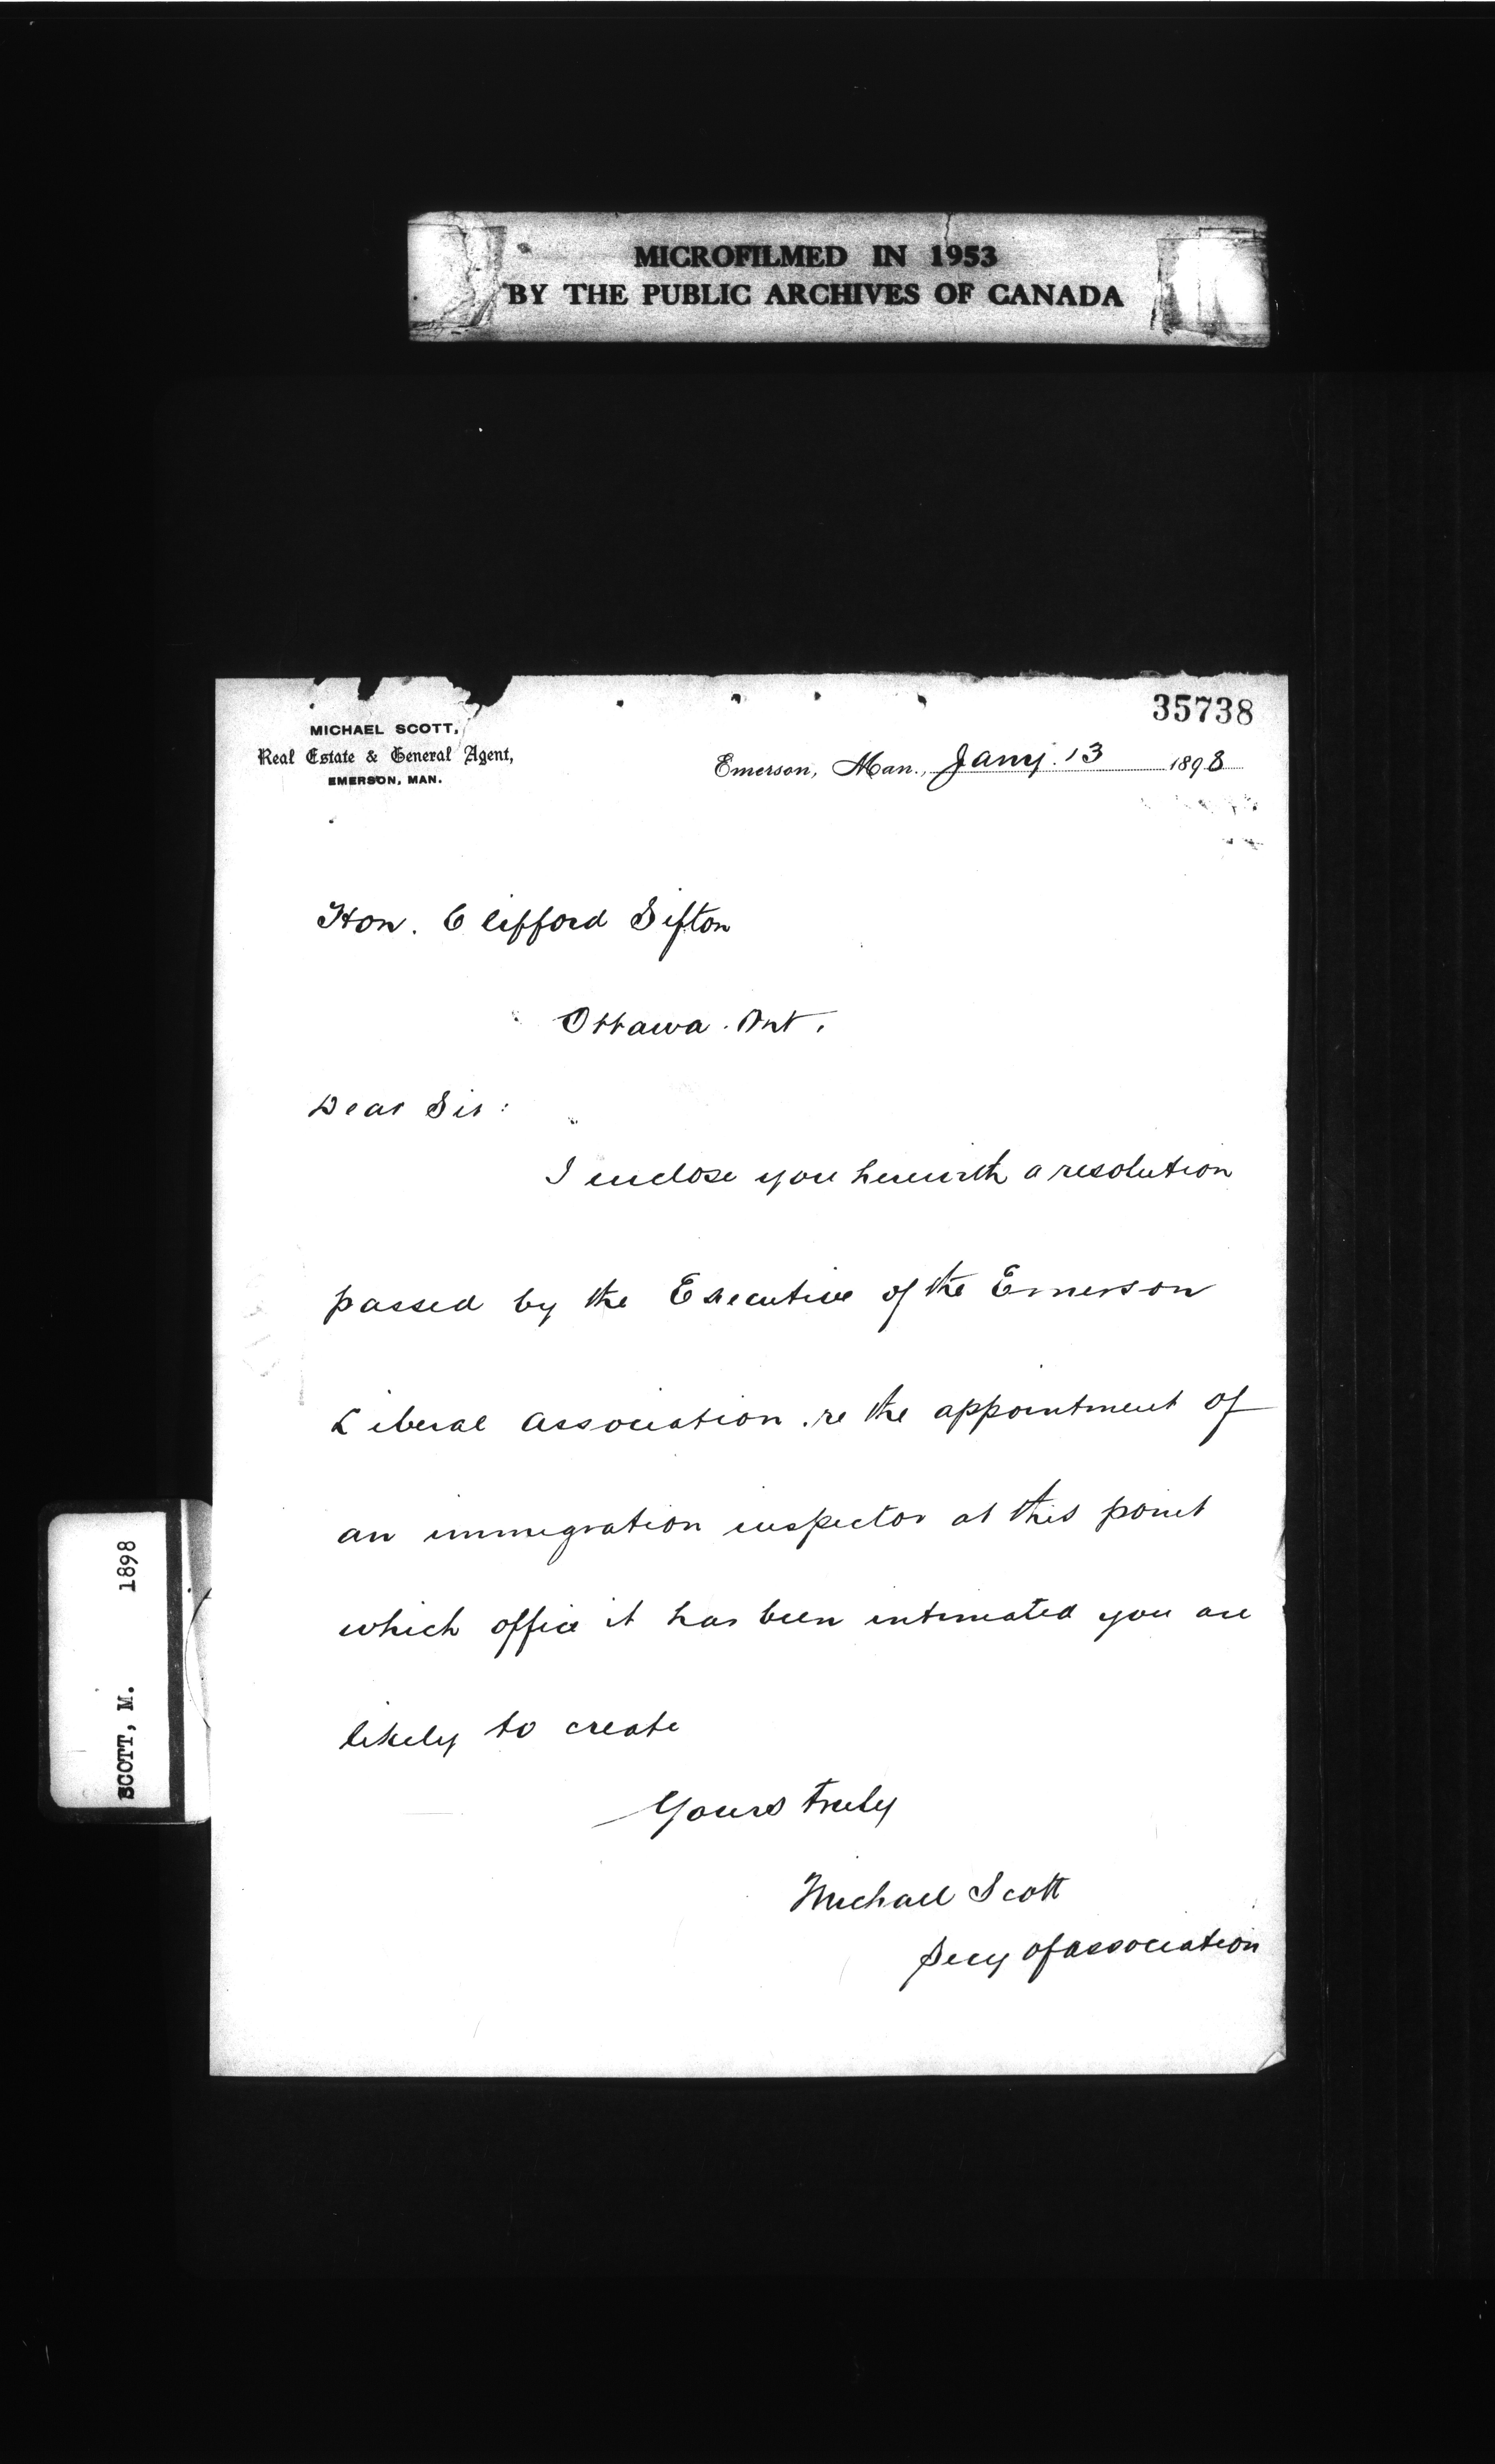 MICROFILMED IN 1953
BY THE PUBLIC ARCHIVES OF CANADA
35738
MICHAEL SCOTT,
Real Estate & General Agent,
EMERSON, MAN.
Emerson, Man., Jany. 13 1898
Hon. Clifford Sifton
Ottawa. Ont.
Dear Sir:
I enclose you herewith a resolution
passed by the Executive of the Emerson
Liberal Association. re the appointment of
an immigration inspector at this point
which office it has been intimated you are
likely to create
Yours truly
Michael Scott
Secy of Association
SCOTT, M. 1898